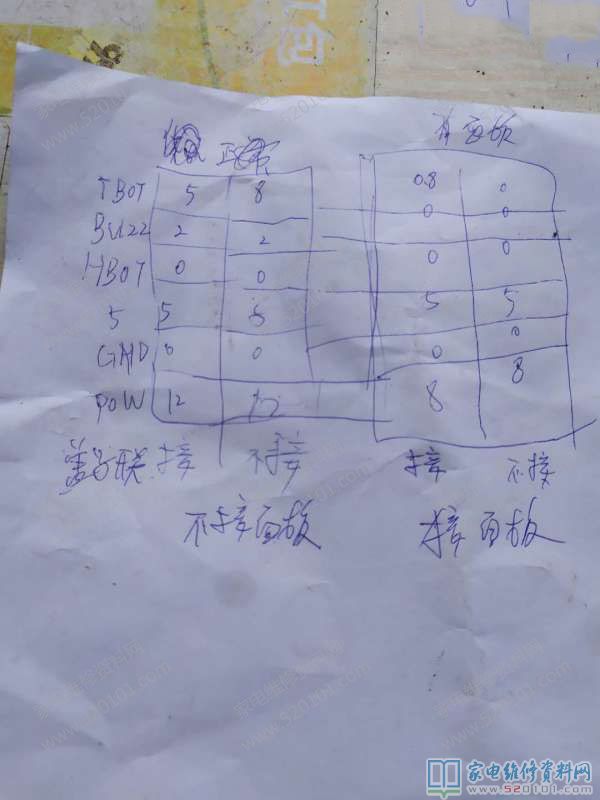 打包
正常
有面板
TBOT 5 8 0.8 0
Buzz 2 2 0 0
HBOT 0 0 0 0
5 5 5 5 5
GND 0 0 0 0
POW 12 12 8 8
盖子联 接 不接 接 不接
不接面板 接面板
家电维修资料网
www.520101.com